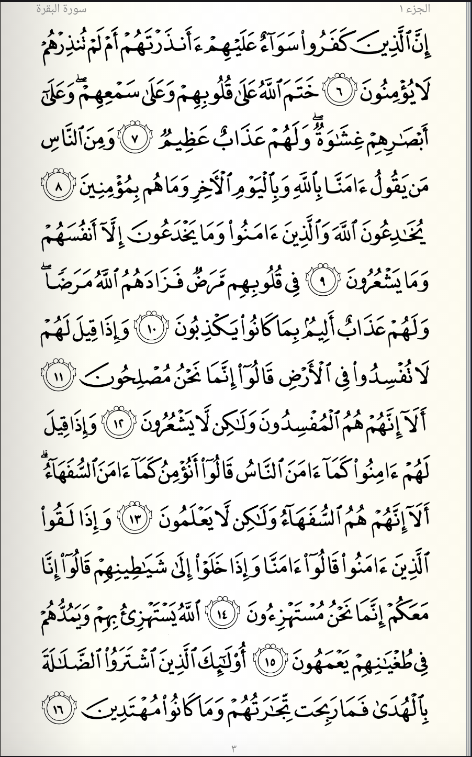 الجزء ١ سورة البقرة
إِنَّ ٱلَّذِينَ كَفَرُوا۟ سَوَآءٌ عَلَيْهِمْ ءَأَنذَرْتَهُمْ أَمْ لَمْ تُنذِرْهُمْ
لَا يُؤْمِنُونَ ٦ خَتَمَ ٱللَّهُ عَلَىٰ قُلُوبِهِمْ وَعَلَىٰ سَمْعِهِمْ ۖ وَعَلَىٰٓ
أَبْصَـٰرِهِمْ غِشَـٰوَةٌ ۖ وَلَهُمْ عَذَابٌ عَظِيمٌ ٧ وَمِنَ ٱلنَّاسِ
مَن يَقُولُ ءَامَنَّا بِٱللَّهِ وَبِٱلْيَوْمِ ٱلْـَٔاخِرِ وَمَا هُم بِمُؤْمِنِينَ ٨
يُخَـٰدِعُونَ ٱللَّهَ وَٱلَّذِينَ ءَامَنُوا۟ وَمَا يَخْدَعُونَ إِلَّآ أَنفُسَهُمْ
وَمَا يَشْعُرُونَ ٩ فِى قُلُوبِهِم مَّرَضٌ فَزَادَهُمُ ٱللَّهُ مَرَضًا ۖ
وَلَهُمْ عَذَابٌ أَلِيمٌۢ بِمَا كَانُوا۟ يَكْذِبُونَ ١٠ وَإِذَا قِيلَ لَهُمْ
لَا تُفْسِدُوا۟ فِى ٱلْأَرْضِ قَالُوٓا۟ إِنَّمَا نَحْنُ مُصْلِحُونَ ١١
أَلَآ إِنَّهُمْ هُمُ ٱلْمُفْسِدُونَ وَلَـٰكِن لَّا يَشْعُرُونَ ١٢ وَإِذَا قِيلَ
لَهُمْ ءَامِنُوا۟ كَمَآ ءَامَنَ ٱلنَّاسُ قَالُوٓا۟ أَنُؤْمِنُ كَمَآ ءَامَنَ ٱلسُّفَهَآءُ ۗ
أَلَآ إِنَّهُمْ هُمُ ٱلسُّفَهَآءُ وَلَـٰكِن لَّا يَعْلَمُونَ ١٣ وَإِذَا لَقُوا۟
ٱلَّذِينَ ءَامَنُوا۟ قَالُوٓا۟ ءَامَنَّا وَإِذَا خَلَوْا۟ إِلَىٰ شَيَـٰطِينِهِمْ قَالُوٓا۟ إِنَّا
مَعَكُمْ إِنَّمَا نَحْنُ مُسْتَهْزِءُونَ ١٤ ٱللَّهُ يَسْتَهْزِئُ بِهِمْ وَيَمُدُّهُمْ
فِى طُغْيَـٰنِهِمْ يَعْمَهُونَ ١٥ أُو۟لَـٰٓئِكَ ٱلَّذِينَ ٱشْتَرَوُا۟ ٱلضَّلَـٰلَةَ
بِٱلْهُدَىٰ فَمَا رَبِحَت تِّجَـٰرَتُهُمْ وَمَا كَانُوا۟ مُهْتَدِينَ ١٦
٣